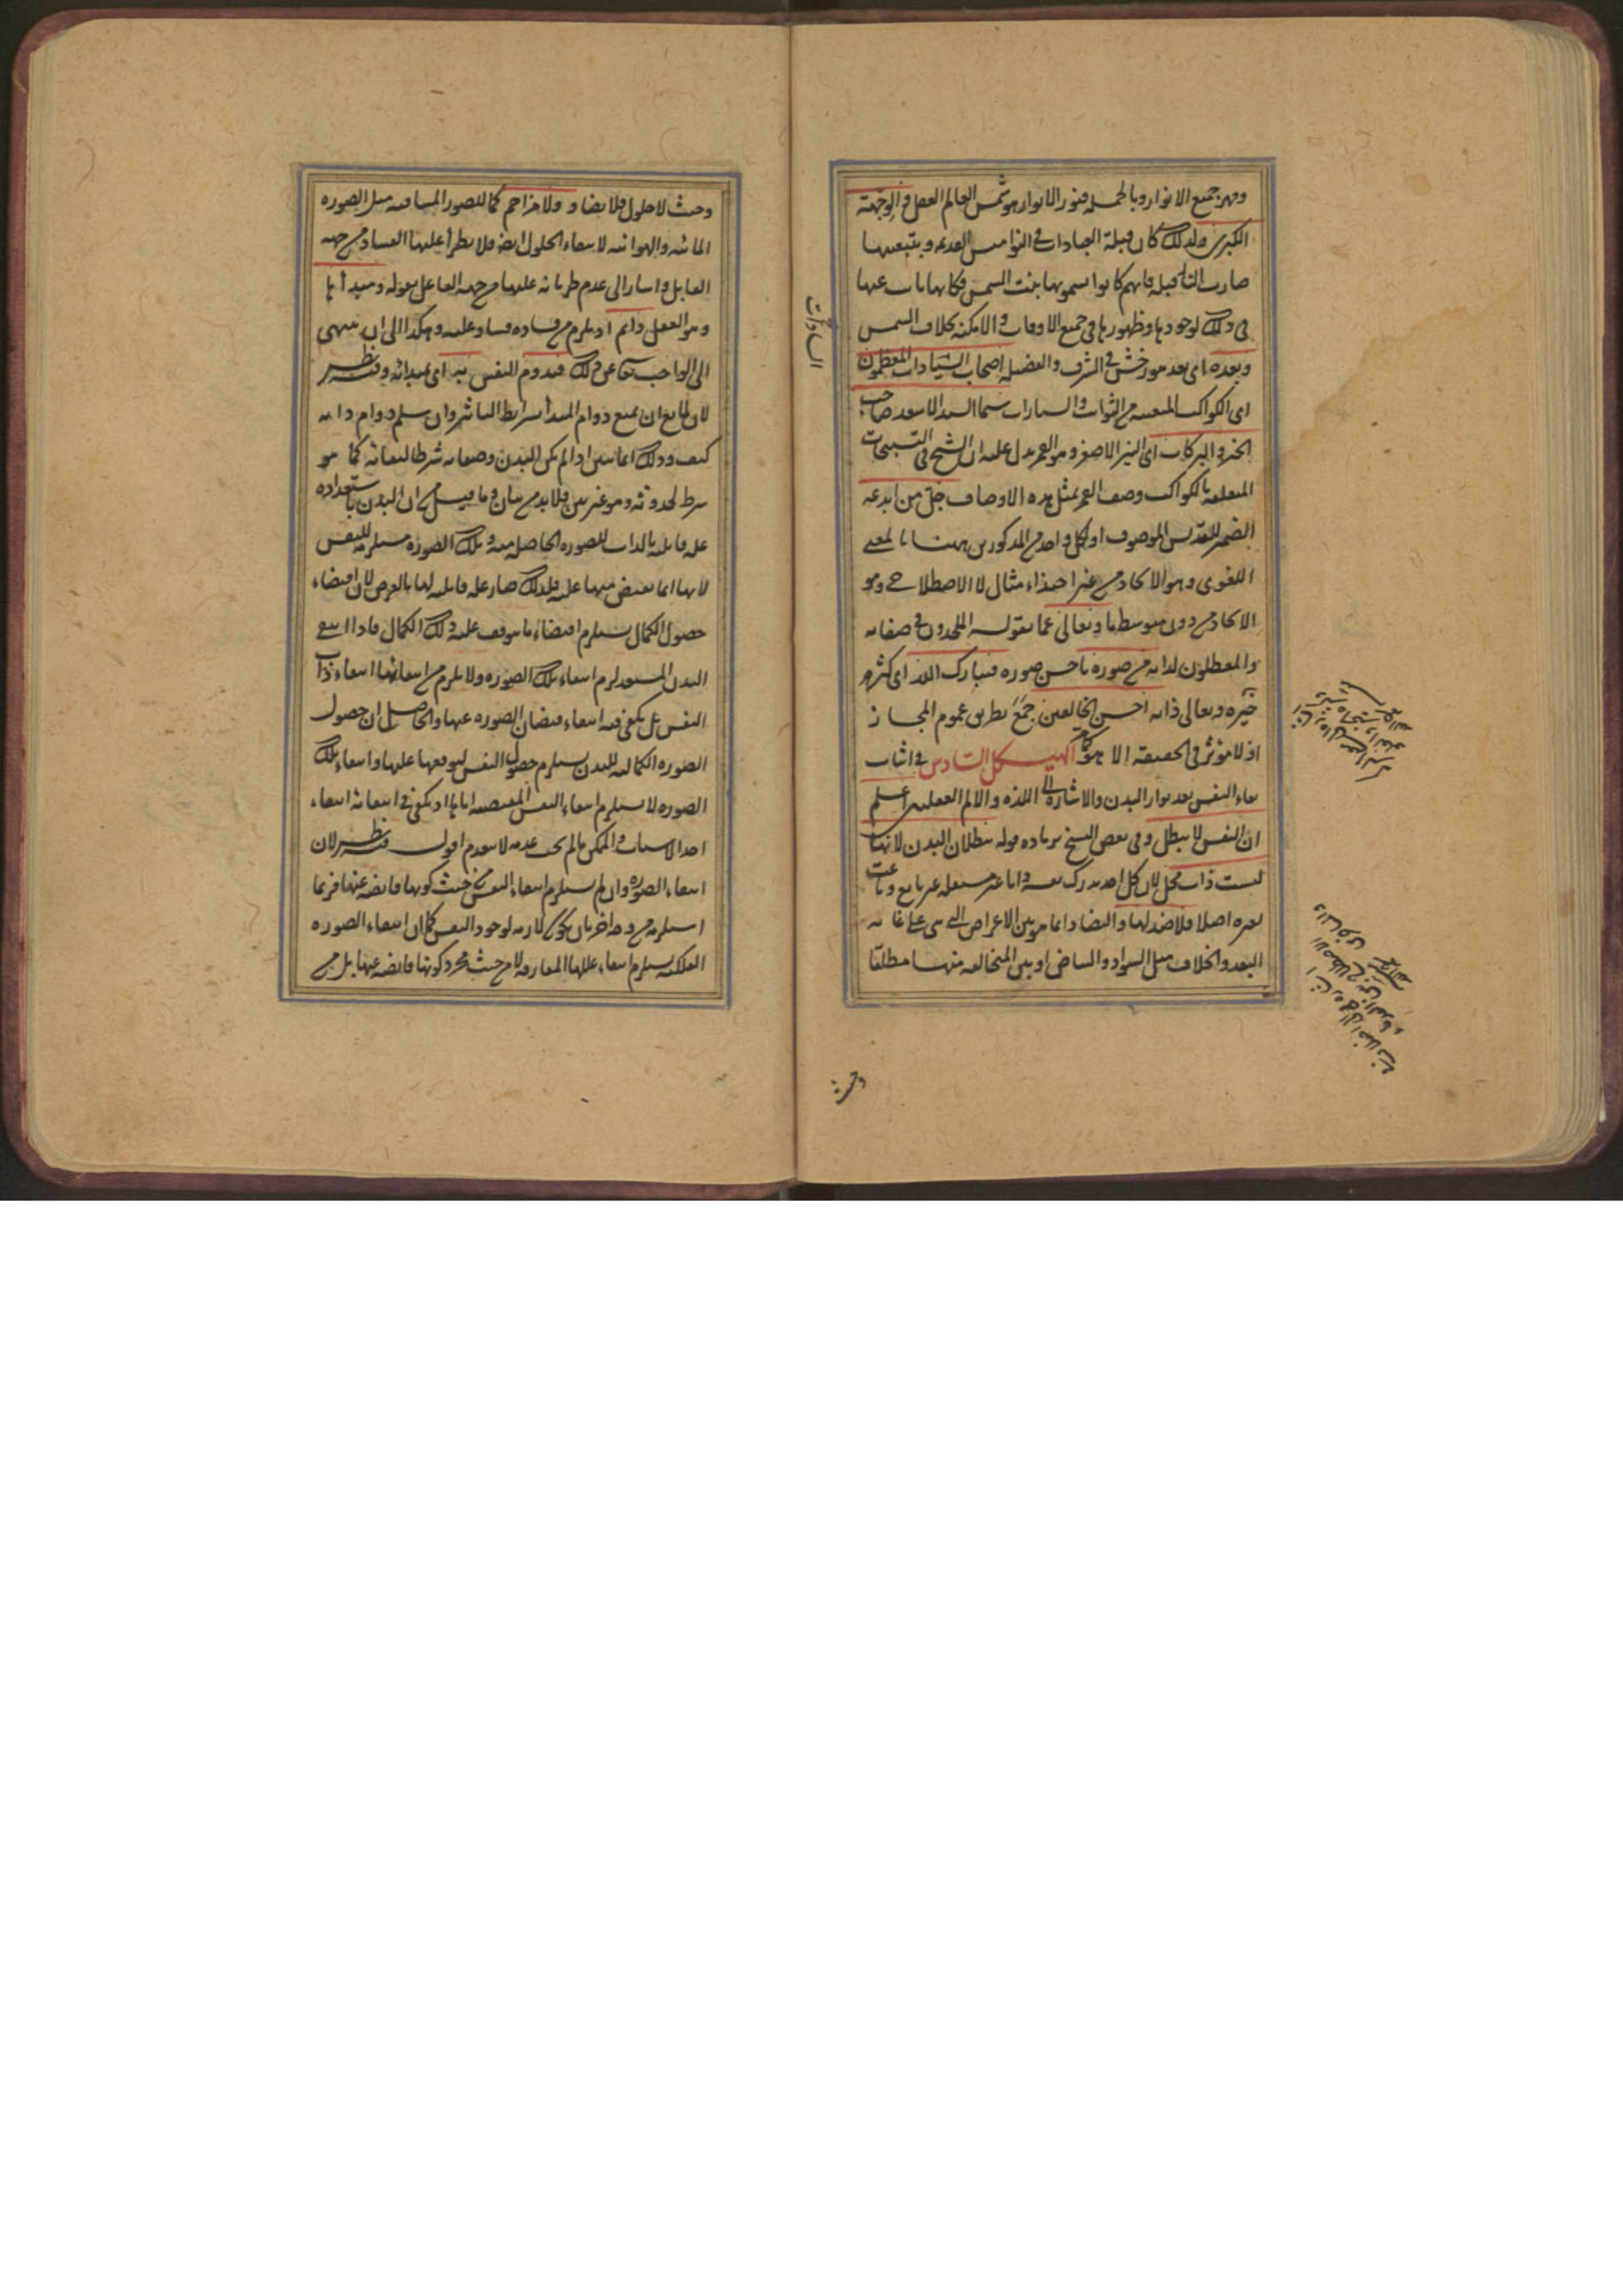 وقهر جميع الانوار وبالجملة فنور الانوار هو شمس العالم العقلي والوجهة
الكبرى ولذلك كان قبلة العبادات في النواميس القديمة وبتبعيتها
صارت النار قبلة فانهم كانوا يسمونها بنت الشمس وكانها نابت عنها
في ذلك لوجودها وظهورها في جميع الاوقات والامكنة بخلاف الشمس
وبعده اي بعد هورخش في الشرف والفضيلة اصحاب السيادات المعظمون
اي الكواكب المتعينة من الثوابت والسيارات سيما السيد الاسعد صاحب
الخير والبركات اي النير الاصغر وهو القمر يدل عليه ان الشيخ في التسبيحات
المتعلقة بالكواكب وصف القمر بمثل هذه الاوصاف جل من ابدعه
الضمير للقديس الموصوف او لكل واحد من المذكورين ههنا بالمعنى
اللغوي وهو الايجاد من غير احتذاء مثال لا الاصطلاحي وهو
الايجاد من دون متوسط ما وتعالى عما يقوله الملحدون في صفاته
والمعطلون لذاته من صوره باحسن صورة فتبارك الله اي كثر
خيره وتعالى ذاته احسن الخالقين جمع بطريق عموم المجاز
اذ لا مؤثر في الحقيقة الا هو الهيكل السادس في اثبات
بقاء النفس بعد بوار البدن والاشارة الى اللذة والالم العقليين اعلم
ان النفس لا يبطل وفي بعض النسخ بزيادة قوله ببطلان البدن لانها
ليست ذات محل لان كل احد يدرك نفسه ذاتا غير متعلقة غير تابع وناعت
لغيره اصلا فلا ضد لها والتضاد انما هو بين الاعراض التي هي على غاية
البعد والخلاف مثل السواد والبياض او بين المتخالفة منها مطلقا
وحيث
السادات
وحيث لا حلول فلا يضاد ولا مزاحم كما للصور المتنافية مثل الصورة
المائية والهوائية لانتفاء الحلول ايضا فلا يطرأ عليها الفساد من جهة
القابل واشار الى عدم طريانه عليها من جهة الفاعل بقوله ومبدأها
وهو العقل دائم اذ يلزم من فساده فساد علته وهكذا الى ان ينتهي
الى الواجب تعالى عن ذلك فيدوم النفس به اي بمبدائه وفيه نظر
لان لمانع ان يمنع دوام المبدأ بشرايط التاثير وان سلم دوام ذاته
كيف وذلك انما يتبين اذا لم يكن للبدن وصفاته شرطا لبقائه كما هو
شرط لحدوثه وهو غير بين فلا بد من بيان وما قيل من ان البدن باستعداده
علة قابلة بالذات للصورة الحاصلة منه وتلك الصورة مستلزمة للنفس
لانها انما يفيض منها عليه فلذلك صار علة قابلة لها بالعرض لان اقتضاء
حصول الكمال يستلزم اقتضاء ما يتوقف عليه ذلك الكمال فاذا انتفى
البدن المستعد لزم انتفاء تلك الصورة ولا يلزم من انتفائها انتفاء ذات
النفس بل يكفي فيه انتفاء فيضان الصورة عنها والحاصل ان حصول
الصورة الكمالية للبدن يستلزم حصول النفس لتوقفها عليها وانتفاء تلك
الصورة لا يستلزم انتفاء النفس المقتضية اياها اذ يكفي في انتفائه انتفاء
احد الاسباب والممكن ما لم يجب عدمه لا ينعدم اقول فيه نظر لان
انتفاء الصورة وان لم يستلزم انتفاء النفس من حيث كونها فايضة عنها فربما
استلزمه من وجه اخر بان يكون لازمه لوجود النفس كما ان انتفاء الصورة
الفلكية يستلزم انتفاء عللها المفارقة لا من حيث مجرد كونها فايضة عنها بل من